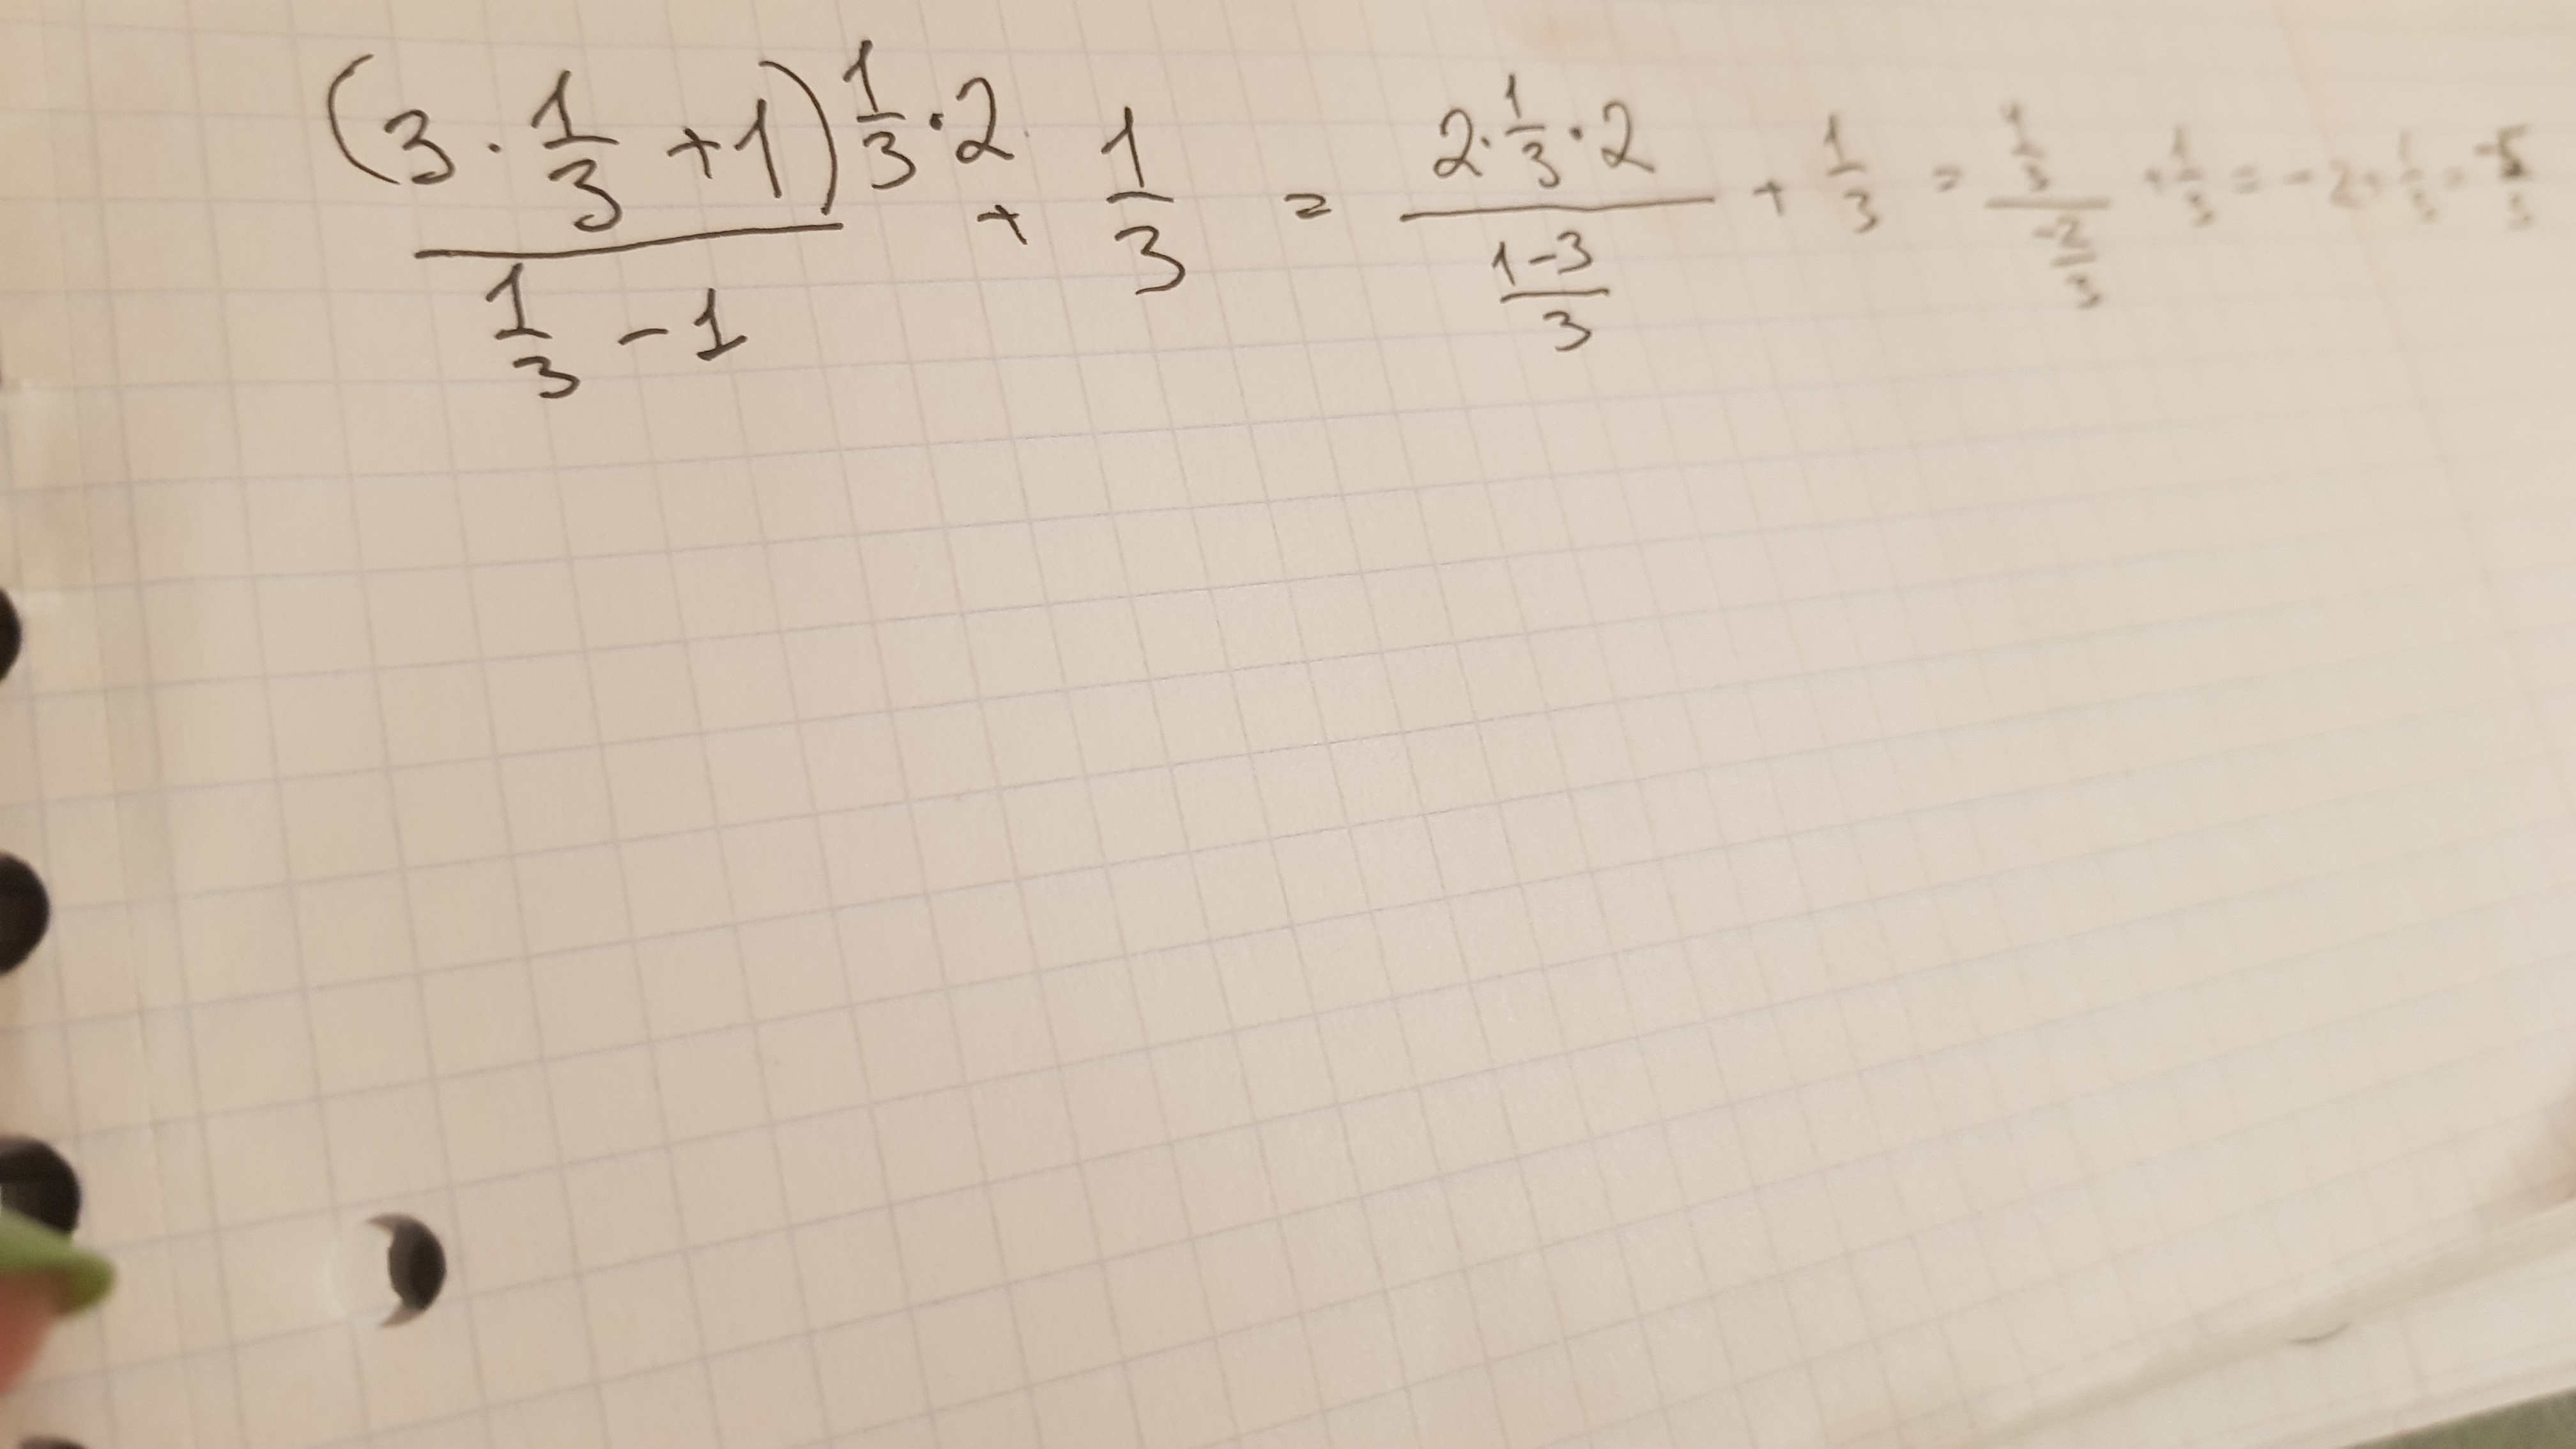 (3·1/3+1)1/3·2/(1/3-1) + 1/3 = (2·1/3·2)/((1-3)/3) + 1/3 = (4/3)/(-2/3) + 1/3 = -2+1/3 = -5/3